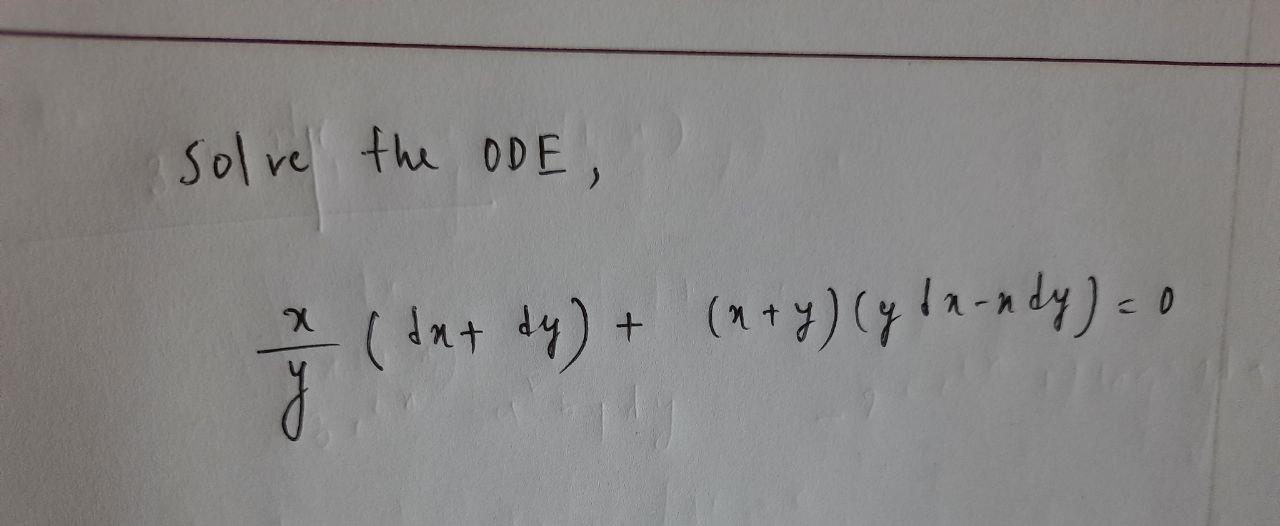 Solve the ODE,
x/y (dx + dy) + (x+y)(y dx - x dy) = 0